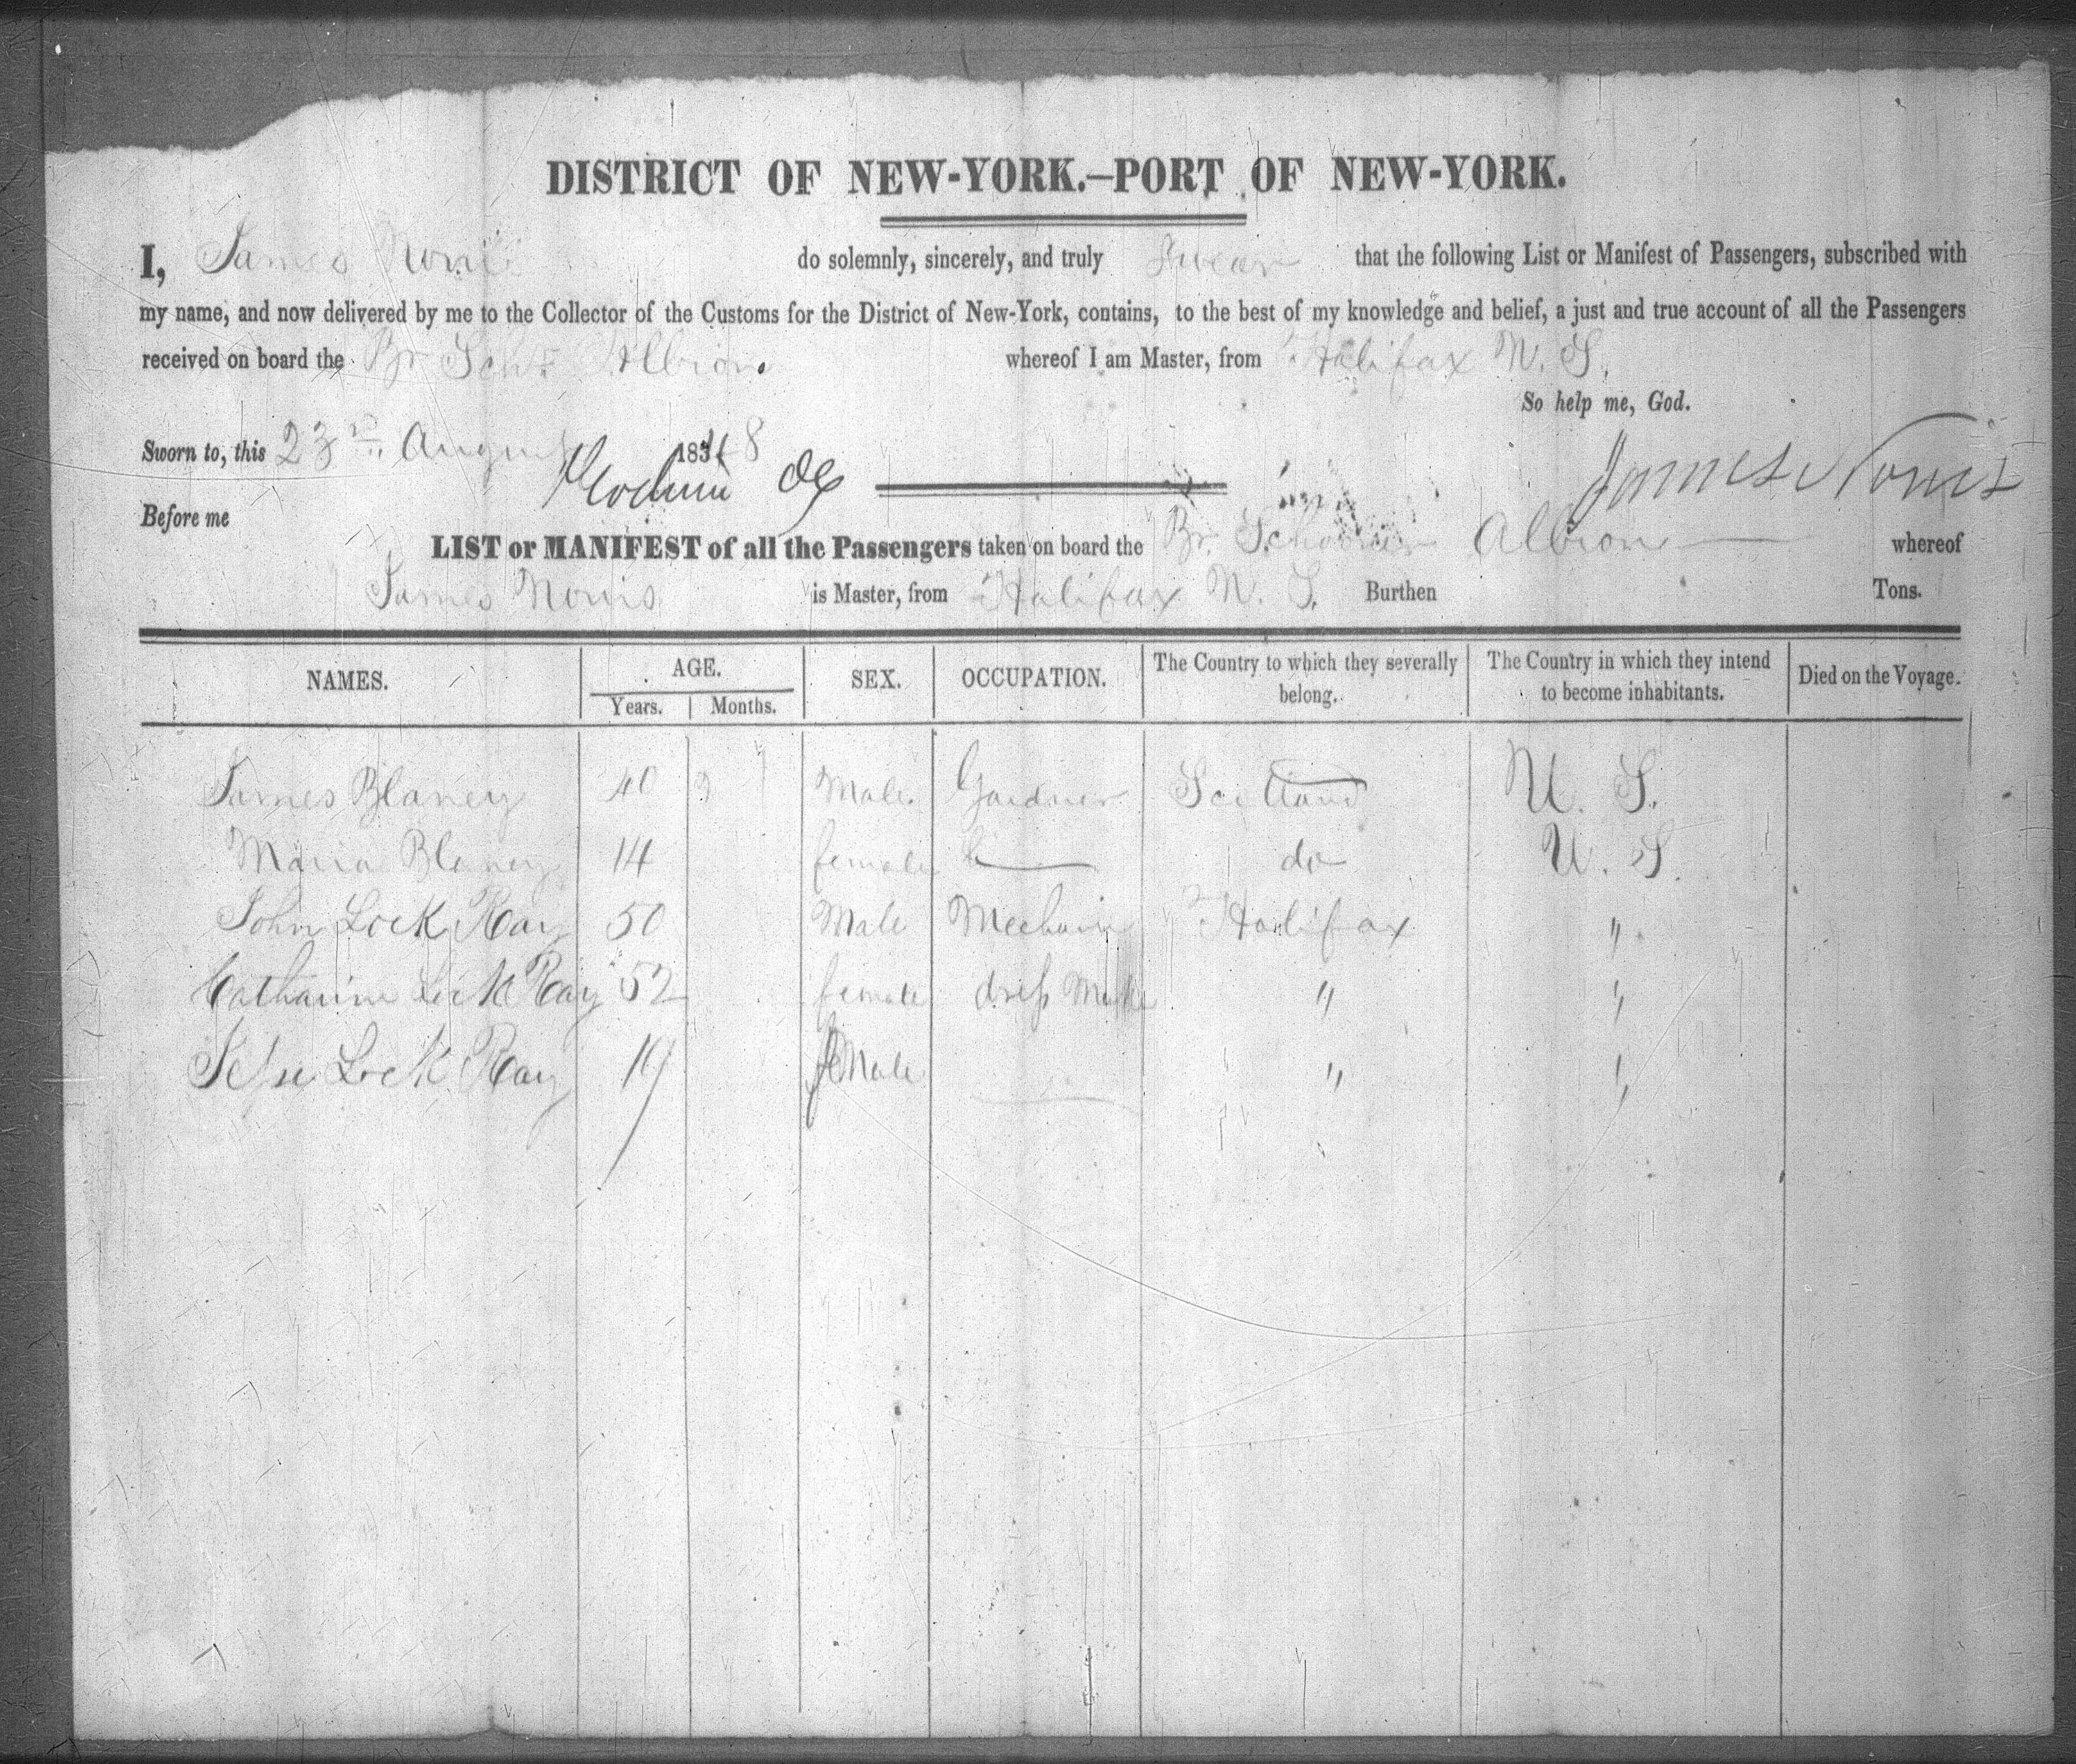 DISTRICT OF NEW-YORK.—PORT OF NEW-YORK.
I, James Norris do solemnly, sincerely, and truly Swear that the following List or Manifest of Passengers, subscribed with
my name, and now delivered by me to the Collector of the Customs for the District of New-York, contains, to the best of my knowledge and belief, a just and true account of all the Passengers
received on board the Br Schr Albion. whereof I am Master, from Halifax N. S.
So help me, God.
Sworn to, this 23rd August 1848
James Norris
Before me
LIST or MANIFEST of all the Passengers taken on board the Br. Schooner Albion whereof
James Norris is Master, from Halifax N. S. Burthen Tons.
NAMES. AGE. SEX. OCCUPATION. The Country to which they severally belong. The Country in which they intend to become inhabitants. Died on the Voyage.
Years. Months.
James Blaney 40 Male. Gardner Scotland U. S.
Maria Blaney 14 female do U. S.
John Lock Ray 50 Male Mechanic Halifax "
Catharine Lock Ray 52 female dress Maker " "
Jesse Lock Ray 19 feMale " "